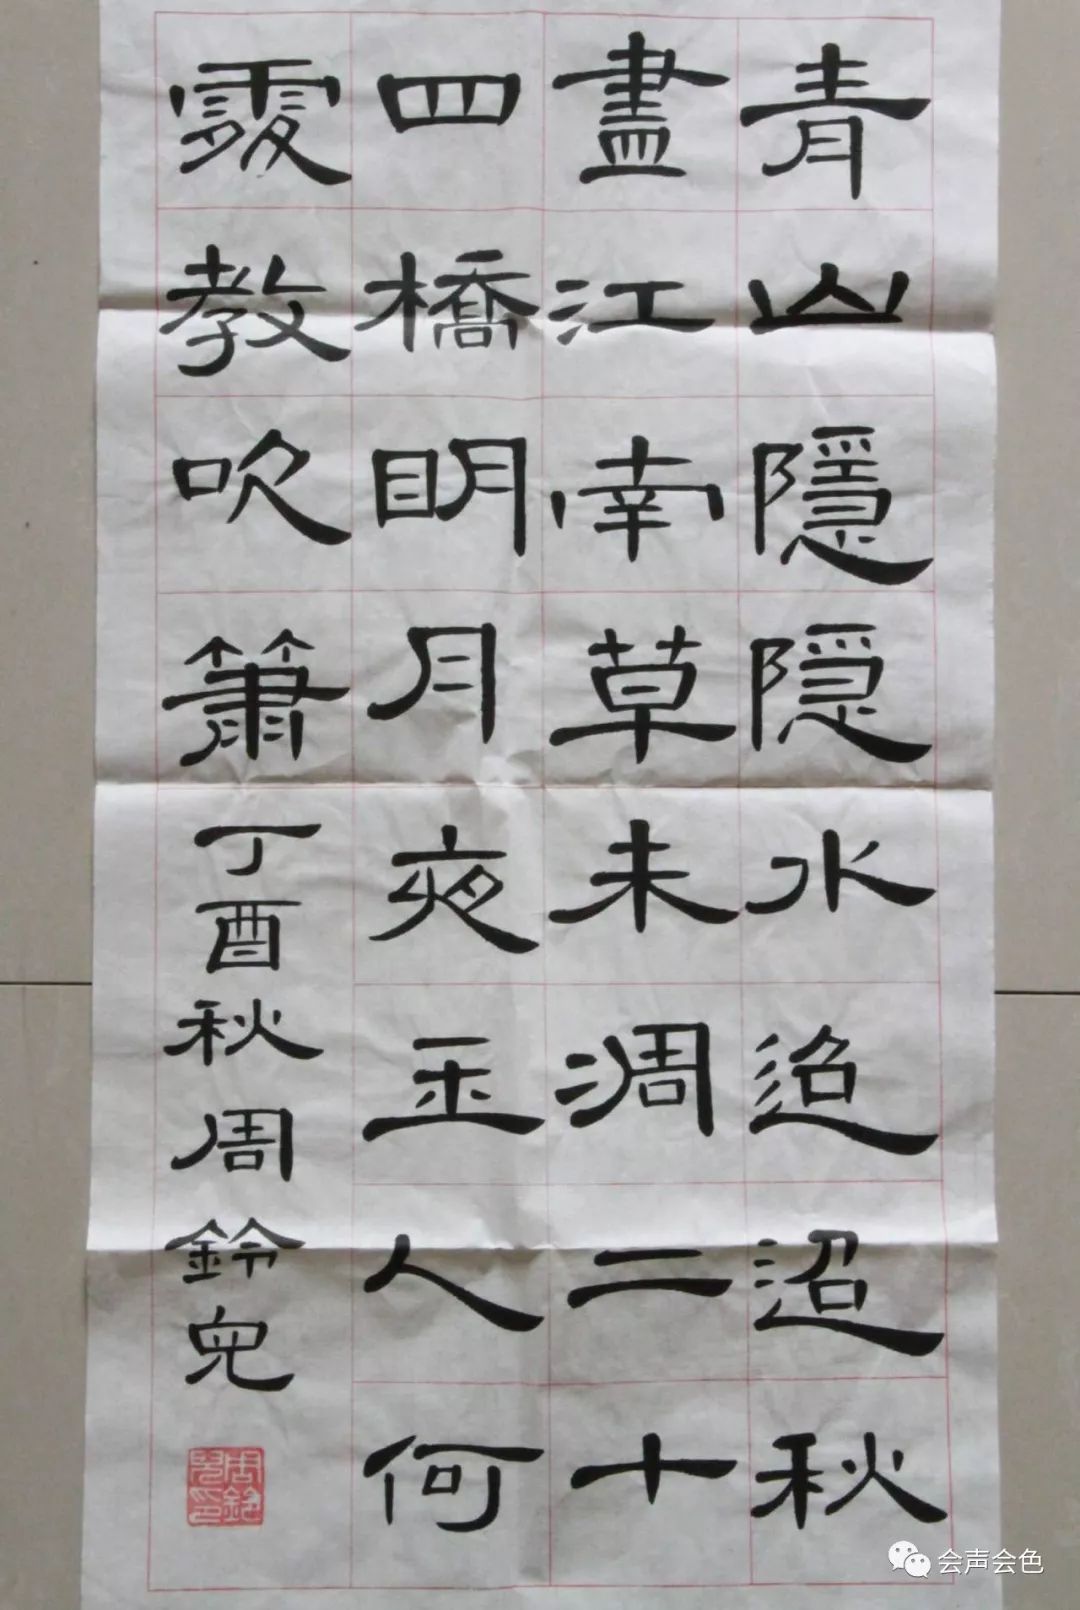 青山隱隐水迢迢秋
盡江南草未凋二十
四橋明月夜玉人何
處教吹簫
丁酉秋周鈴兒
周鈴兒印
会声会色